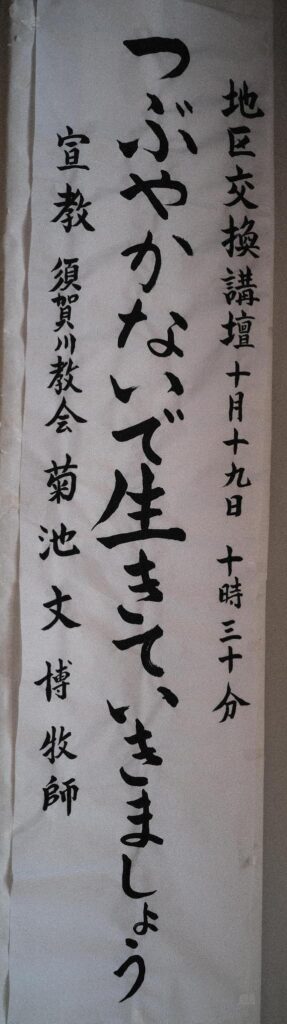 地区交換講壇 十月十九日 十時三十分
つぶやかないで生きていきましょう
宣教 須賀川教会 菊池丈博牧師